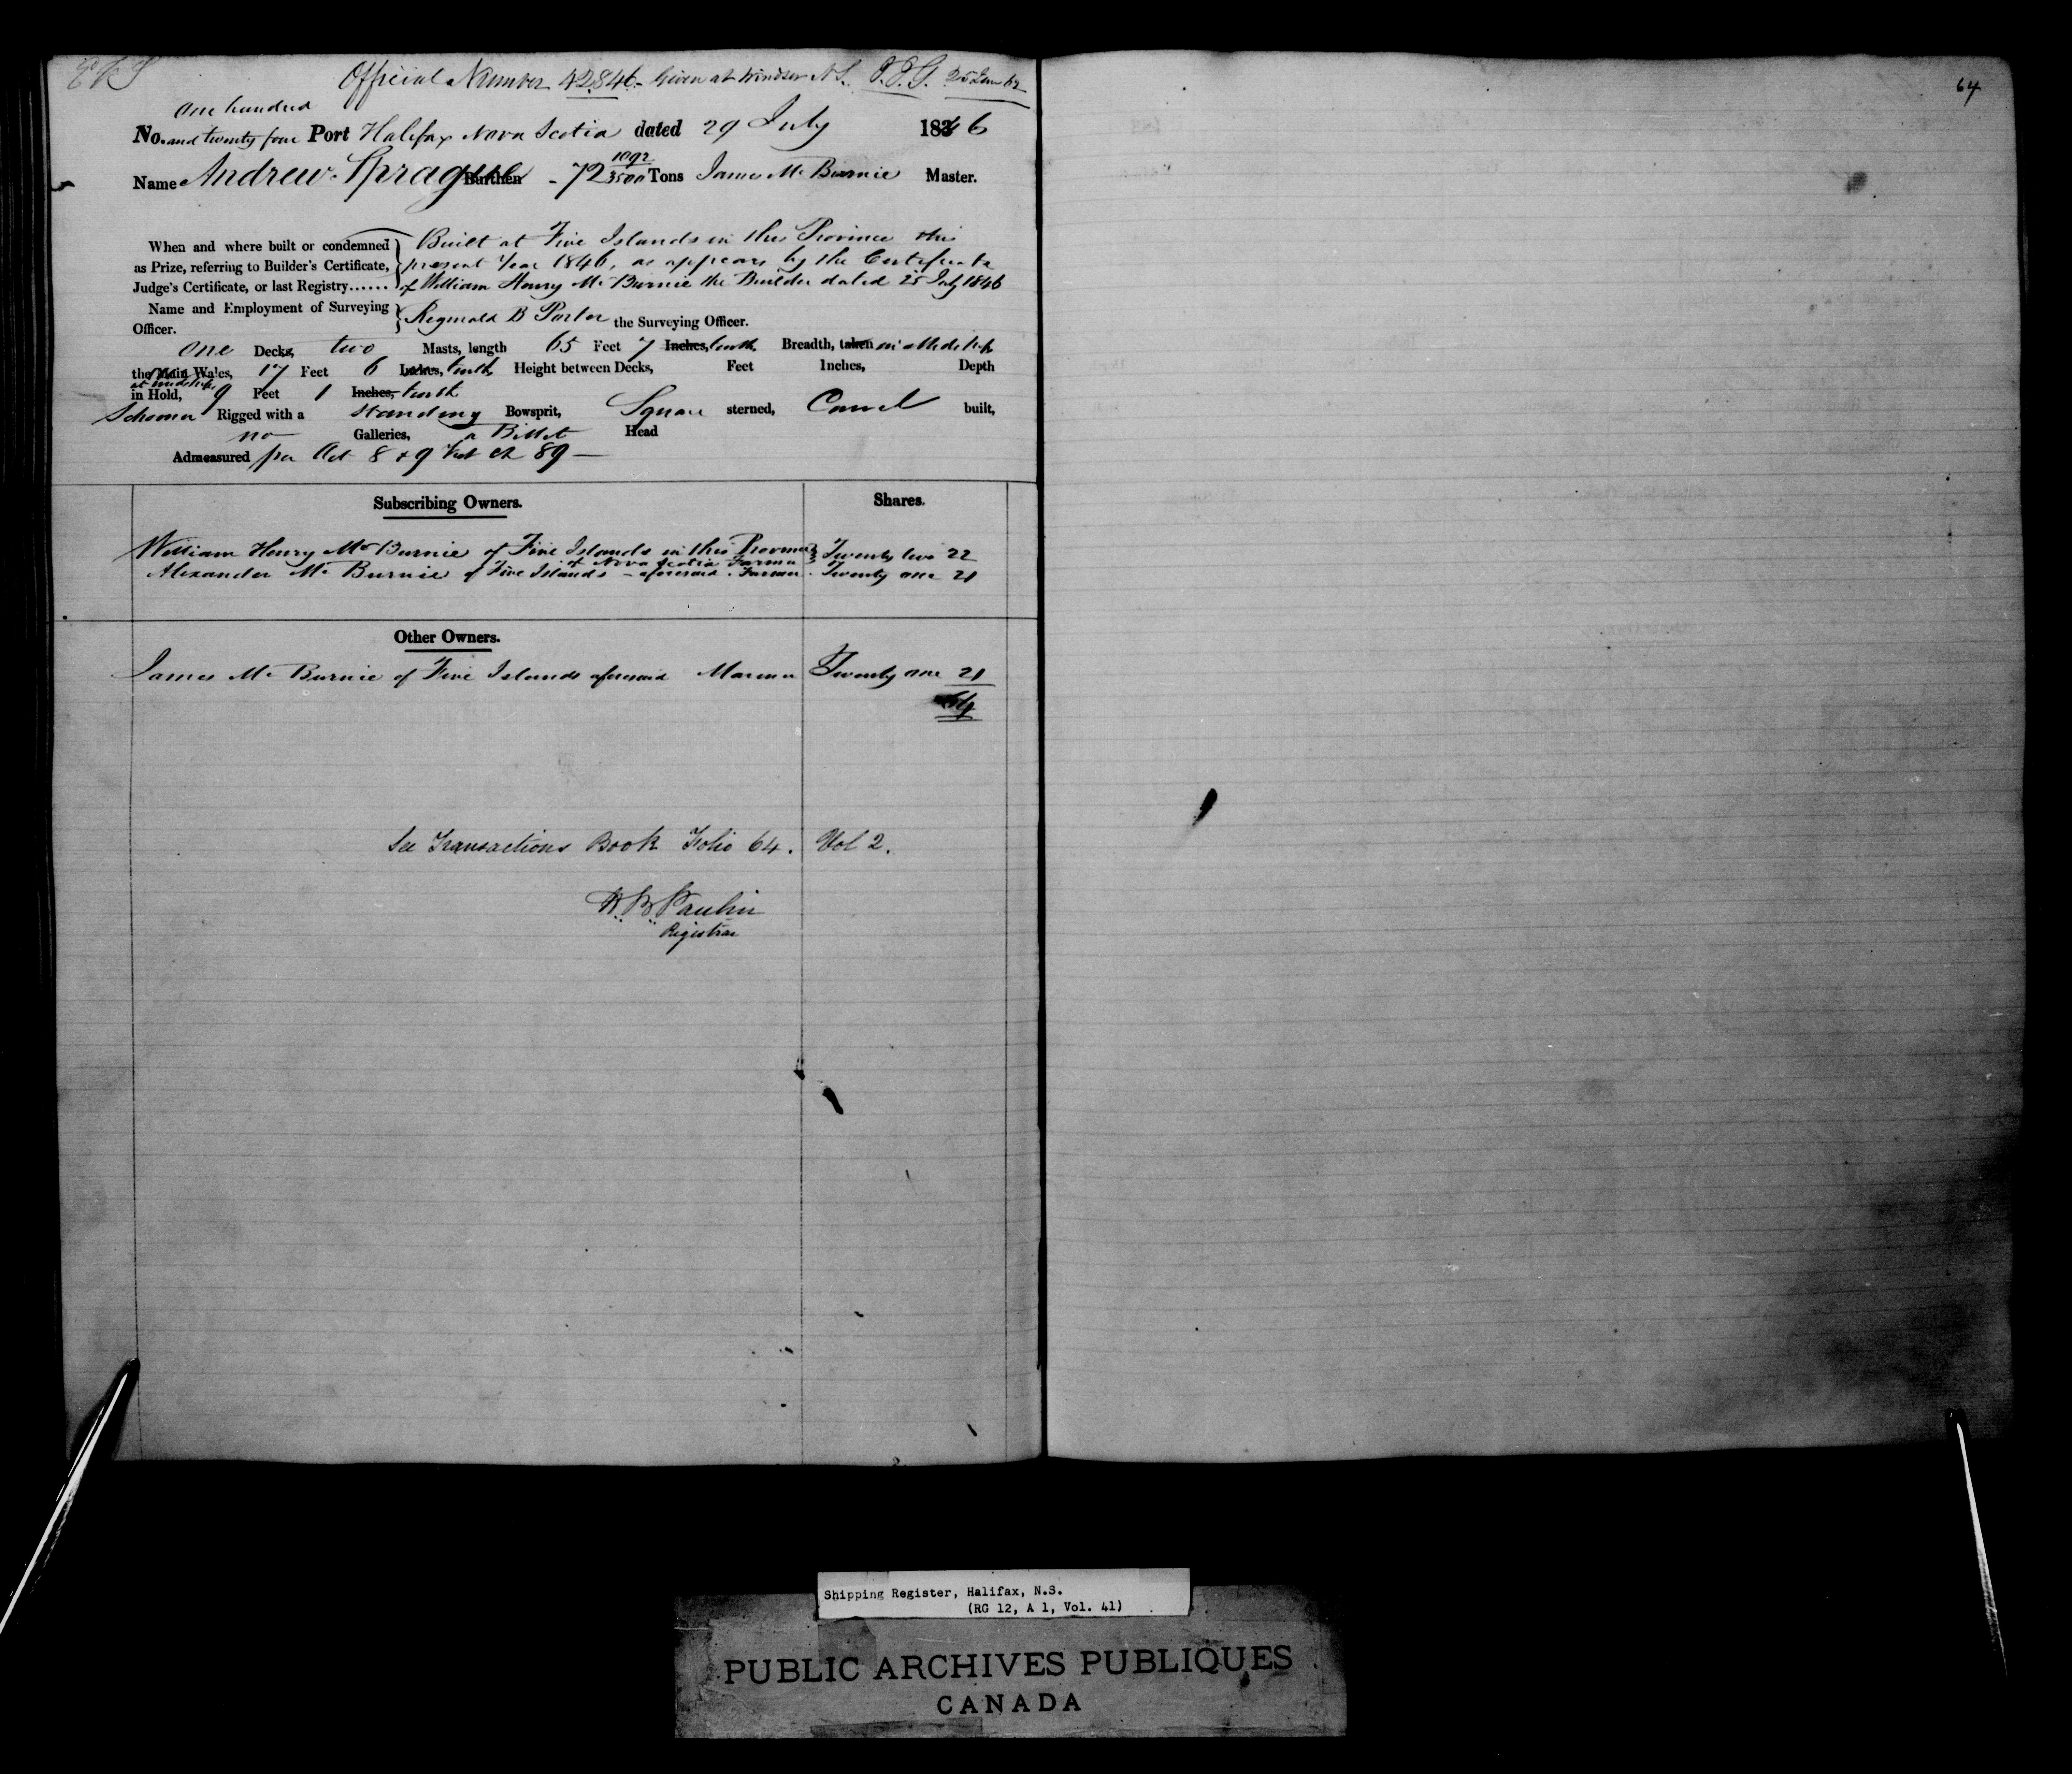 Official Number 42846 Given at Windsor N S.
64
One hundred
No. and twenty four Port Halifax Nova Scotia dated 29 July 1846
Name Andrew Sprague Burthen - 72 1092/3500 Tons James Mc Burnie Master.
When and where built or condemned
as Prize, referring to Builder's Certificate,
Judge's Certificate, or last Registry......
Built at Five Islands in this Province this
present Year 1846, as appears by the Certificate
of William Henry Mc Burnie the Builder dated 25 July 1846
Name and Employment of Surveying
Officer.
Reginald B Porter the Surveying Officer.
One Decks, two Masts, length 65 Feet 7 Inches, tenths Breadth, taken in midships
the Main Wales, 17 Feet 6 Inches, tenths Height between Decks, Feet Inches, Depth
at midships
in Hold, 9 Feet 1 Inches, tenth
Schooner Rigged with a standing Bowsprit, Square sterned, Carvel built,
no Galleries, a Billet Head
Admeasured per Act 8 & 9 Vict Ch 89 —
Subscribing Owners. Shares.
William Henry Mc Burnie of Five Islands in this Province Twenty two 22
of Nova Scotia Farmer
Alexander Mc Burnie of Five Islands - aforesaid - Farmer Twenty one 21
Other Owners.
James Mc Burnie of Five Islands aforesaid Mariner Twenty one 21
64
See Transactions Book Folio 64. Vol 2.
Registrar
Shipping Register, Halifax, N.S.
(RG 12, A 1, Vol. 41)
PUBLIC ARCHIVES PUBLIQUES
CANADA